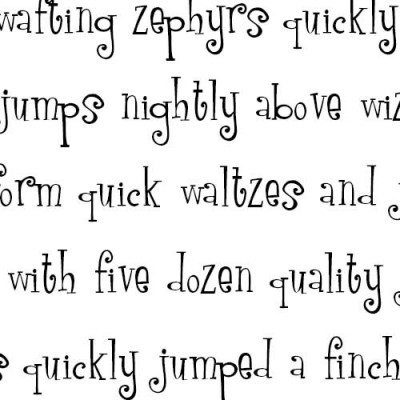 wafting zephyrs quickly
jumps nightly above wiz
form quick waltzes and j
with five dozen quality j
s quickly jumped a finch